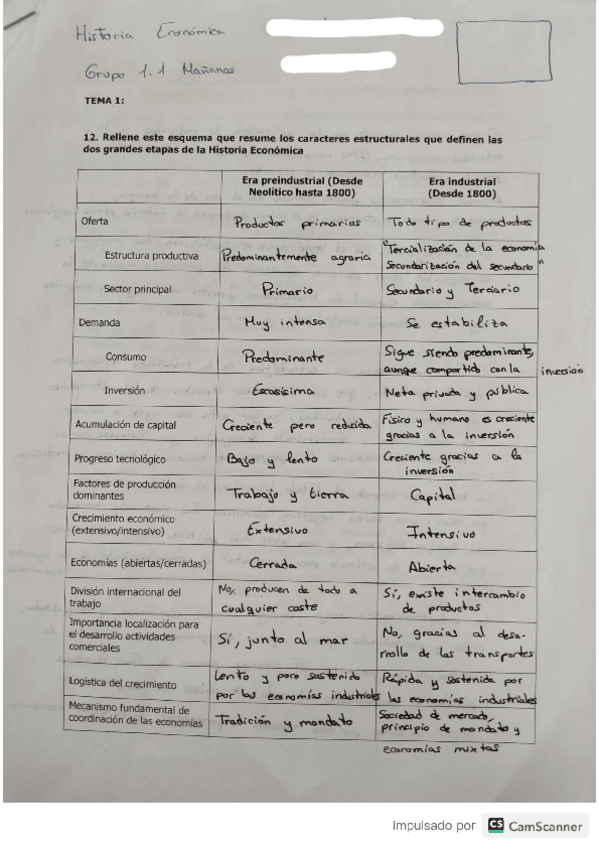 Historia Económica
Grupo 1.1 Mañanas
TEMA 1:
12. Rellene este esquema que resume los caracteres estructurales que definen las
dos grandes etapas de la Historia Económica
Era preindustrial (Desde
Neolítico hasta 1800)
Era industrial
(Desde 1800)
Oferta
Productos primarios
Todo tipo de productos
Estructura productiva
Predominantemente agraria
"Tercialización de la economía
Secundarización del secundario"
Sector principal
Primario
Secundario y Terciario
Demanda
Muy intensa
Se estabiliza
Consumo
Predominante
Sigue siendo predominante,
aunque compartido con la inversión
Inversión
Escasísima
Neta privada y pública
Acumulación de capital
Creciente pero reducida
Físico y humano es creciente
gracias a la inversión
Progreso tecnológico
Bajo y lento
Creciente gracias a la
inversión
Factores de producción
dominantes
Trabajo y tierra
Capital
Crecimiento económico
(extensivo/intensivo)
Extensivo
Intensivo
Economías (abiertas/cerradas)
Cerrada
Abierta
División internacional del
trabajo
No, producen de todo a
cualquier coste
Sí, existe intercambio
de productos
Importancia localización para
el desarrollo actividades
comerciales
Sí, junto al mar
No, gracias al desa-
rrollo de los transportes
Logística del crecimiento
Lento y poco sostenido
por las economías industriales
Rápida y sostenida por
las economías industriales
Mecanismo fundamental de
coordinación de las economías
Tradición y mandato
Sociedad de mercado,
principio de mandato y
economías mixtas
Impulsado por CS CamScanner